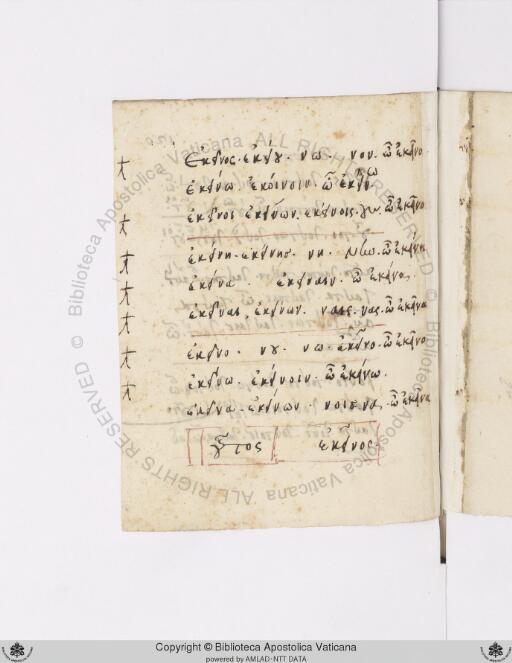 Ἐκεῖνος. ἐκείνου. νω. νον. ὦ ἐκεῖνο
ἐκείνω ἐκείνοιν. ὦ ἐκείνω
ἐκεῖνοι ἐκείνων. ἐκείνοις. ὦ ἐκεῖνοι
ἐκείνη. ἐκείνης. νη. ὦ ἐκείνη
ἐκείνα. ἐκείναιν. ὦ ἐκείνα.
ἐκεῖναι. ἐκείνων. ναις. νας. ὦ ἐκεῖναι
ἐκεῖνο. νου. νω. ἐκεῖνο. ὦ ἐκεῖνο
ἐκείνω. ἐκείνοιν. ὦ ἐκείνω.
ἐκεῖνα. ἐκείνων νοις. να. ὦ ἐκεῖνα
οὗτος ἐκεῖνος.
Copyright © Biblioteca Apostolica Vaticana
powered by AMLAD-NTT DATA
© Biblioteca Apostolica Vaticana ALL RIGHTS RESERVED
© Biblioteca Apostolica Vaticana ALL RIGHTS RESERVED